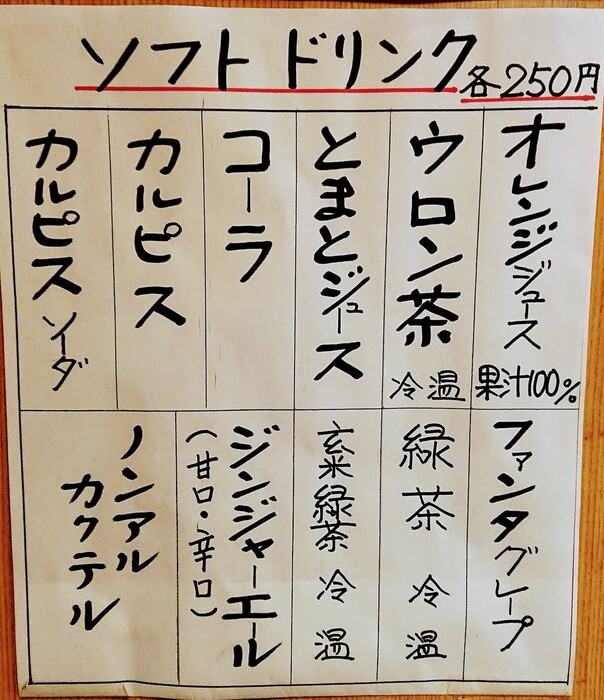 ソフトドリンク 各250円
オレンジジュース 果汁100%
ウロン茶 冷温
とまとジュース
コーラ
カルピス
カルピスソーダ
ファンタグレープ
緑茶 冷 温
玄米緑茶 冷 温
ジンジャーエール
(甘口・辛口)
ノンアル
カクテル